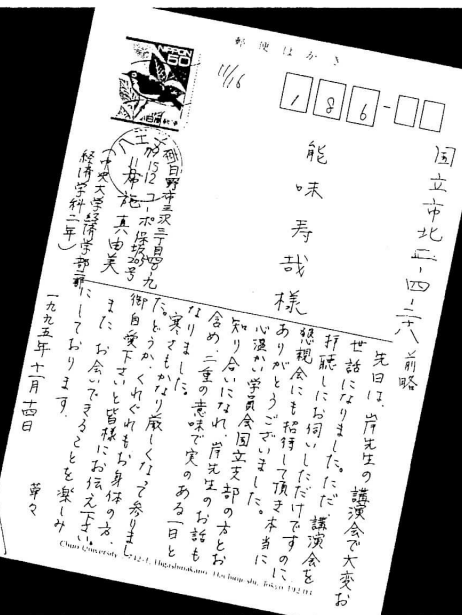 郵便はがき
NIPPON
60
11/16
186-
国立市北二-四-二六
能味寿哉様
日野市三沢三丁目四一九
一五一二コーポ保坂203号
布施真由美
(中央大学経済学部
経済学科二年)
前略
先日は、岸先生の講演会で大変お
世話になりました。ただ講演会を
拝聴しにお伺いしただけですのに、
懇親会にも招待して頂き本当に
ありがとうございました。
心温かい学員会国立支部の方とお
知り合いになれ、岸先生のお話も
含め、二重の意味で実のある一日と
なりました。
寒さもかなり厳しくなって参りまし
た。どうか、くれぐれもお身体の方、
御自愛下さいと皆様にお伝え下さい。
また、お会いできることを楽しみ
にしております。
一九九五年十一月十四日
草々
Chuo University 742-1, Higashinakano, Hachioji-shi, Tokyo 192-03